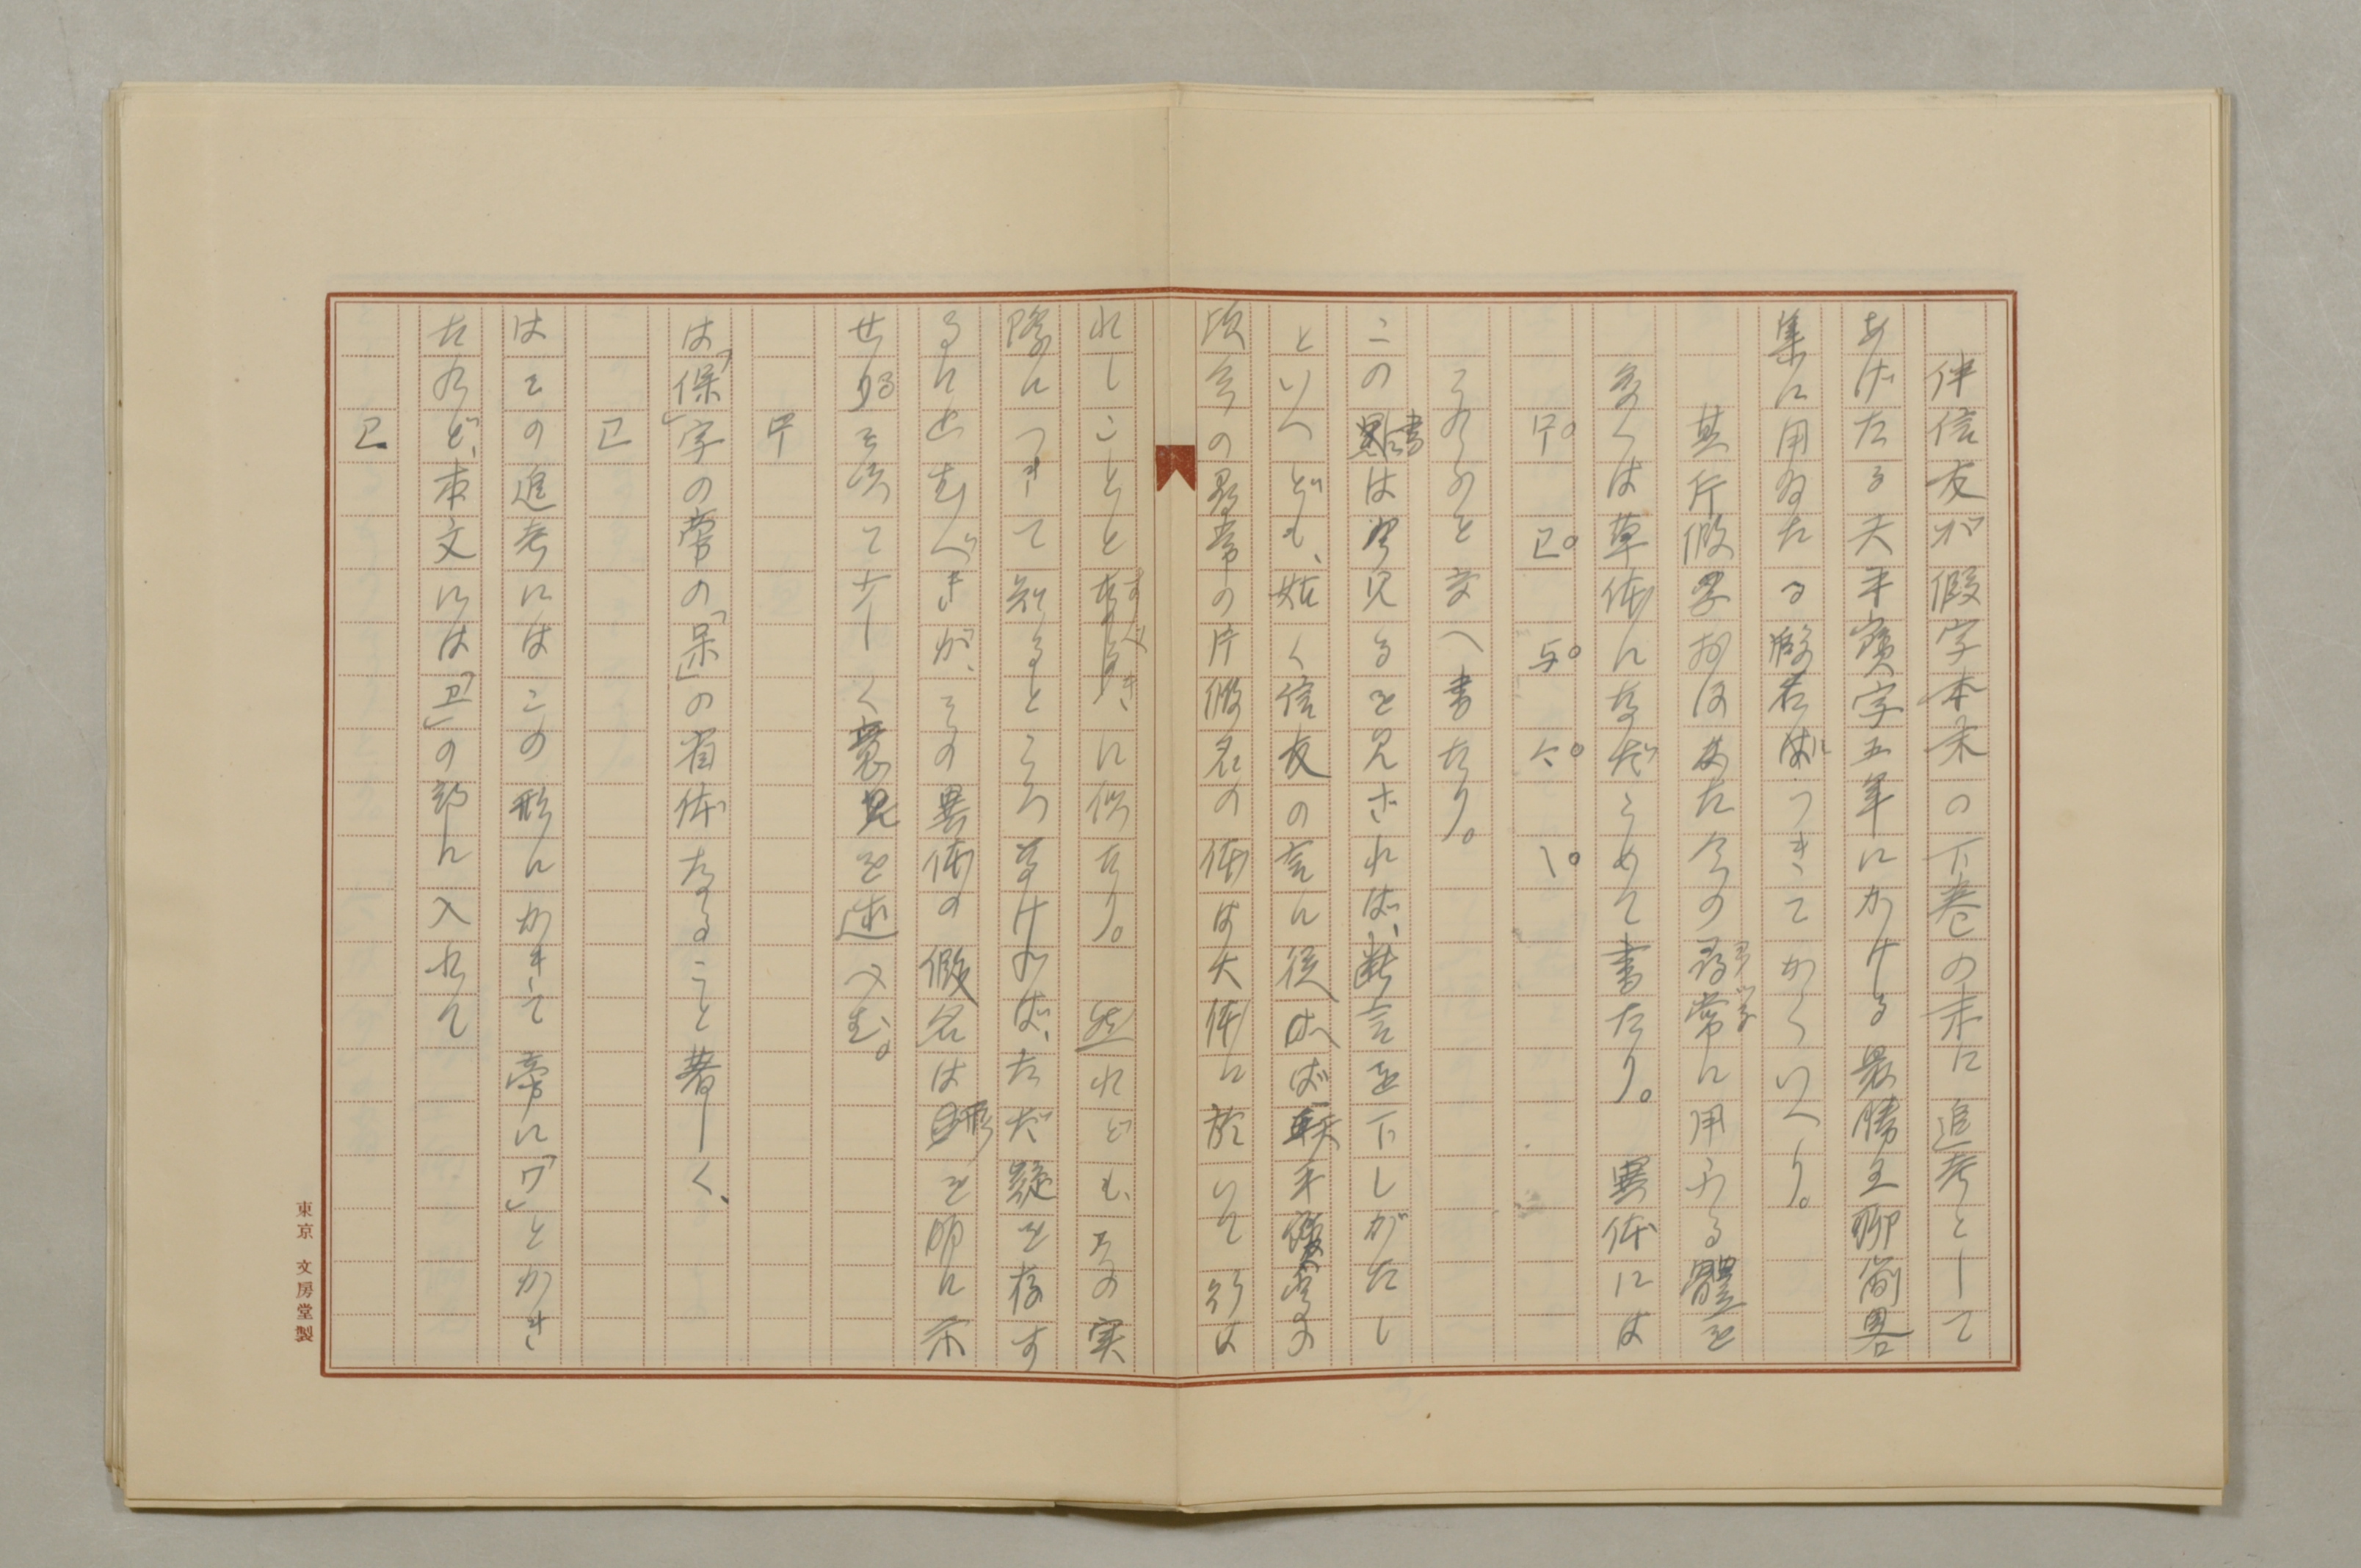 伴信友が假字本末の下巻の末に追考として
あげたる天平寳字五年にかける最勝王聊簡畧
集に用ゐたる假名にっきてかくいへり。
其片假字おほかた今の尋常に用ふる體を
多くは草体になだらめて書たり。異体には
㔫。 卫。 与。 𠆢。 ﹨。
これらのを交へ書たり。
この書は今見るを見ざれば、断言を下しがたし
といへども、姑く信友の言に従はば天平寳字の
頃今の尋常の片假名の体は大体に於いて行は
れしことと なすべきに似たり。然れどもその実
際につきて知るところなければ、ただ疑を存す
るに止むべきが、その異体の假名は形を明に示
せるを以て少しく意見を述べむ。
㔫
は「保」字の常の「呆」の省体なること著しく、
卫
はその追考にはこの形にかきて常に「ワ」とかき
たれど、本文には「卫」の部に入れて
卫
東京 文房堂製